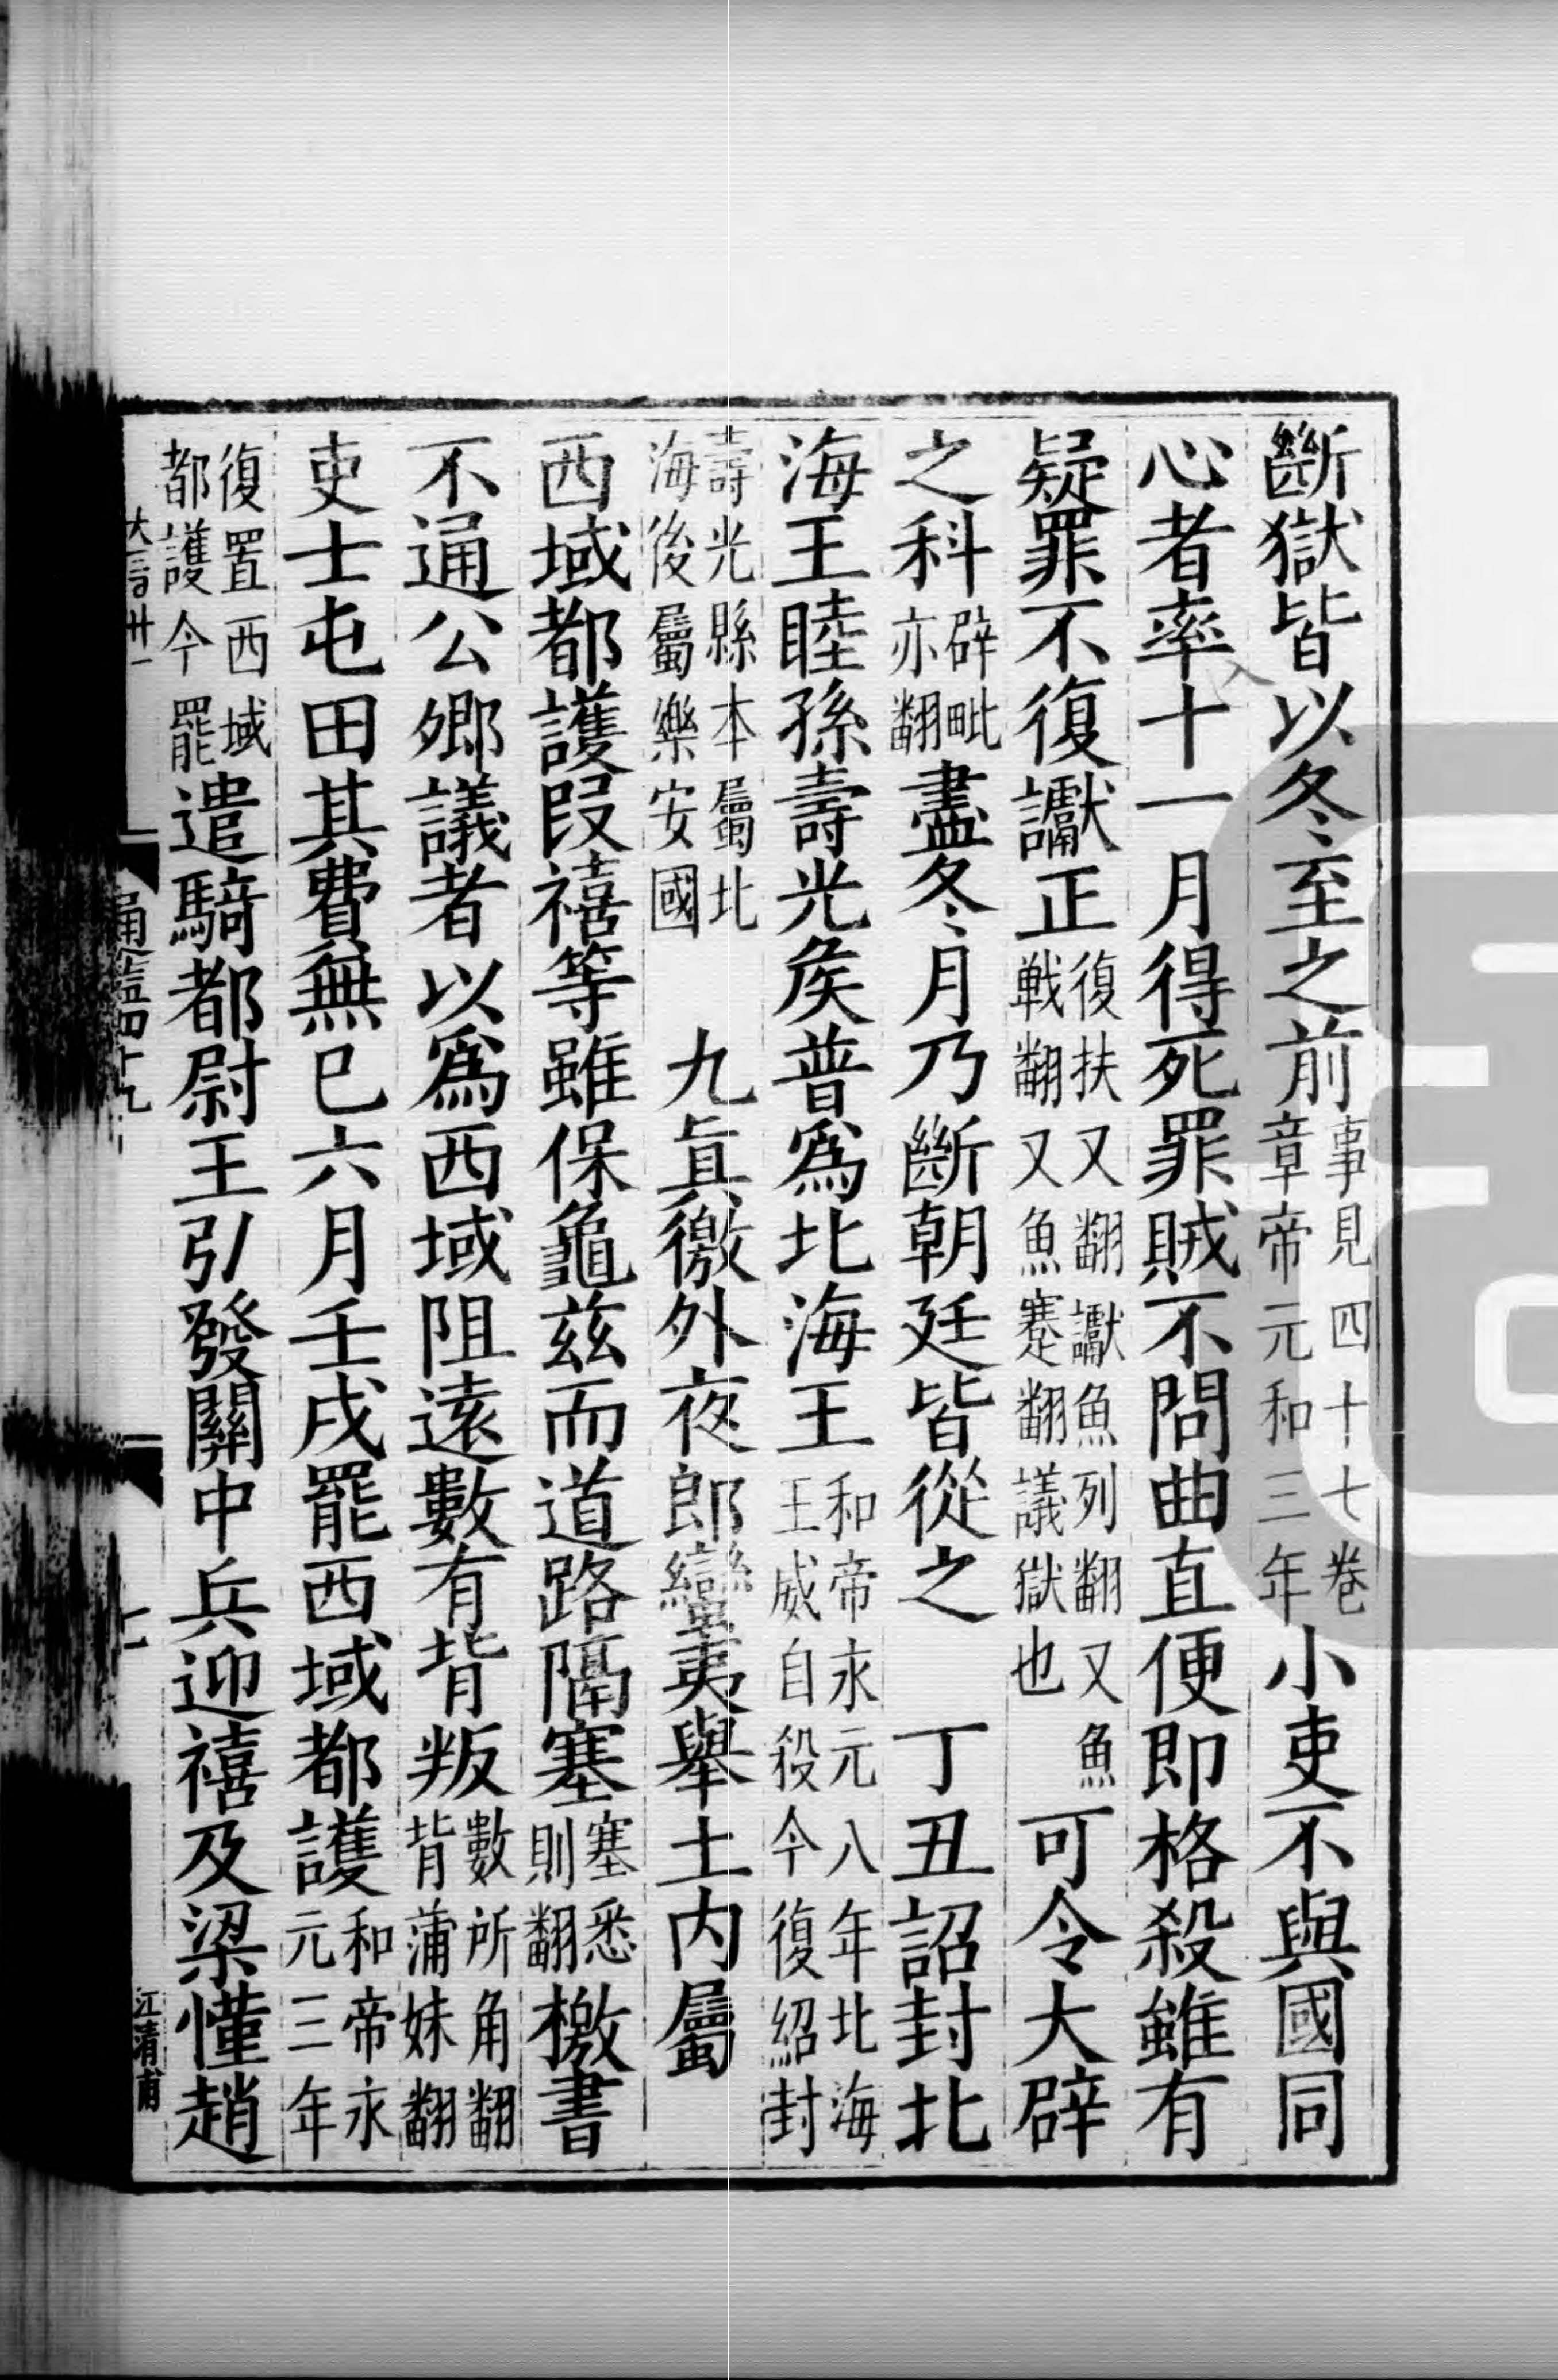 斷獄皆以冬至之前事見四十七卷章帝元和三年小吏不與國同
心者率十一月得死罪賊不問曲直便即格殺雖有
疑罪不復讞正復扶又翻讞魚列翻又魚戰翻又魚蹇翻議獄也可令大辟
之科辟毗亦翻盡冬月乃斷朝廷皆從之　丁丑詔封北
海王睦孫壽光矦普爲北海王和帝永元八年北海王威自殺今復紹封
壽光縣本屬北海後屬樂安國　九眞徼外夜郎蠻夷舉土内屬
西域都護段禧等雖保龜兹而道路隔塞塞悉則翻檄書
不通公卿議者以爲西域阻遠數有背叛數所角翻背蒲妹翻
吏士屯田其費無已六月壬戌罷西域都護和帝永元三年
復置西域都護今罷遣騎都尉王引發關中兵迎禧及梁慬趙
通鑑四十九
江清甫